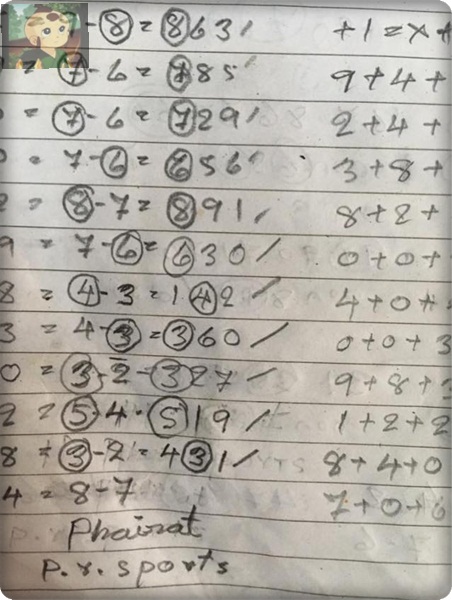 7-8=8631 +1=x+
= 7-6=785 9+4+
= 7-6=729/ 2+4+
= 7-6=656 3+8+
2 = 8-7=891/ 8+2+
9 = 7-6=630/ 0+0+
8 = 4-3=142/ 4+0+
3 = 4-3=360/ 0+0+3
0 = 3-2-327/ 9+8+3
2 = 5-4-519/ 1+2+2
8 = 3-2=431/ 8+4+0
4 = 8-7 7+0+
Phairat
P.r.sports